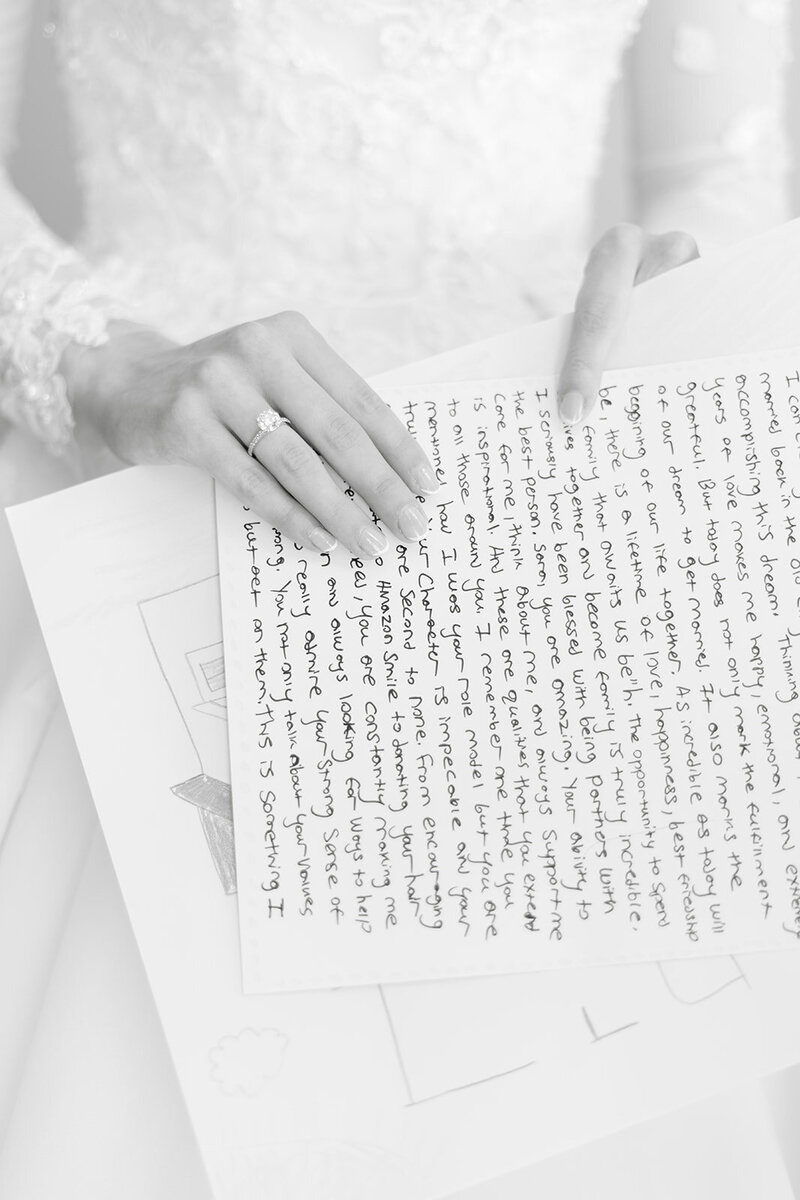 I can
married back in the old
accomplishing this dream. Thinking about
years of love makes me happy, emotional, and
greatful. But today does not only mark the fulfillment
of our dream to get married. It also marks the
beggining of our life together. As incredible as today will
be, there is a lifetime of love, happinness, best friendship
family that awaits us The opportunity to spend
lives together and become family is truly incredible.
I seriously have been blessed with being partners with
the best person. Sara, you are amazing. Your ability to
care for me, think about me, and always support me
is inspirational. And these are qualities that you extend
to all those around you. I remember one time you
mentioned how I was your role model but you are
Your character is impecable and your
are second to none. From encouraging
Amazon Smile to donating your hair
you are constantly making me
always looking for ways to help
really admire your strong sense of
wrong. You not only talk about your values
but act on them. This is something I